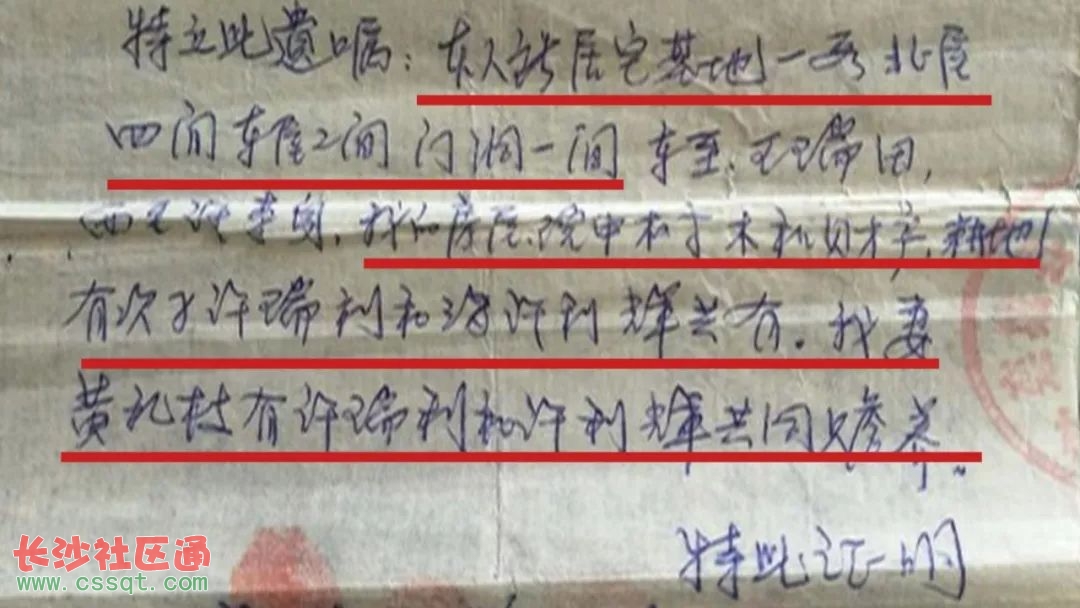 特立此遗嘱：本人新居宅基地一处北屋
四间东屋2间门洞一间 东至：王瑞田，
西至许，我的房屋院中和于木和财产，耕地
有次子许瑞利和许利辉共有。我妻
黄礼枝有许瑞利和许利辉共同赡养。
特此证明
长沙社区通
www.cssqt.com